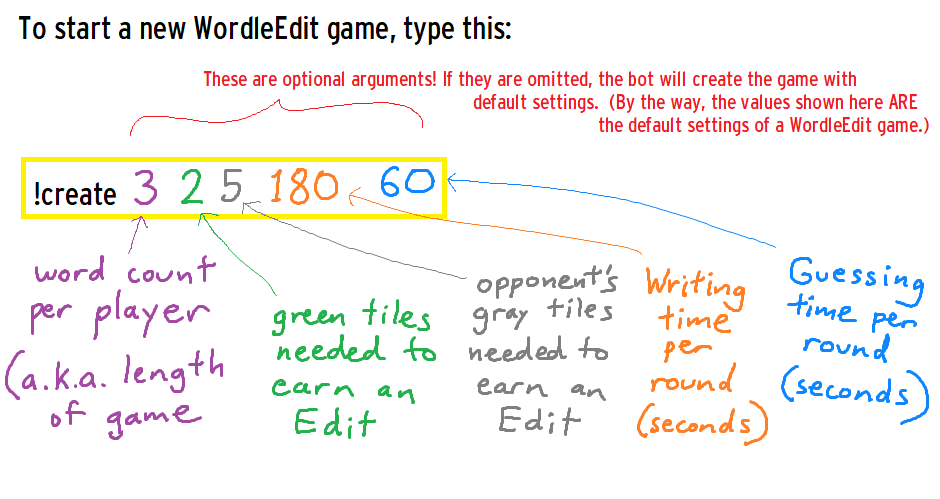 To start a new WordleEdit game, type this:
These are optional arguments! If they are omitted, the bot will create the game with
default settings. (By the way, the values shown here ARE
the default settings of a WordleEdit game.)
!create 3 2 5 180 60
word count
per player
(a.k.a. length
of game
green tiles
needed to
earn an
Edit
opponent's
gray tiles
needed to
earn an
Edit
Writing
time
per
round
(seconds)
Guessing
time per
round
(seconds)